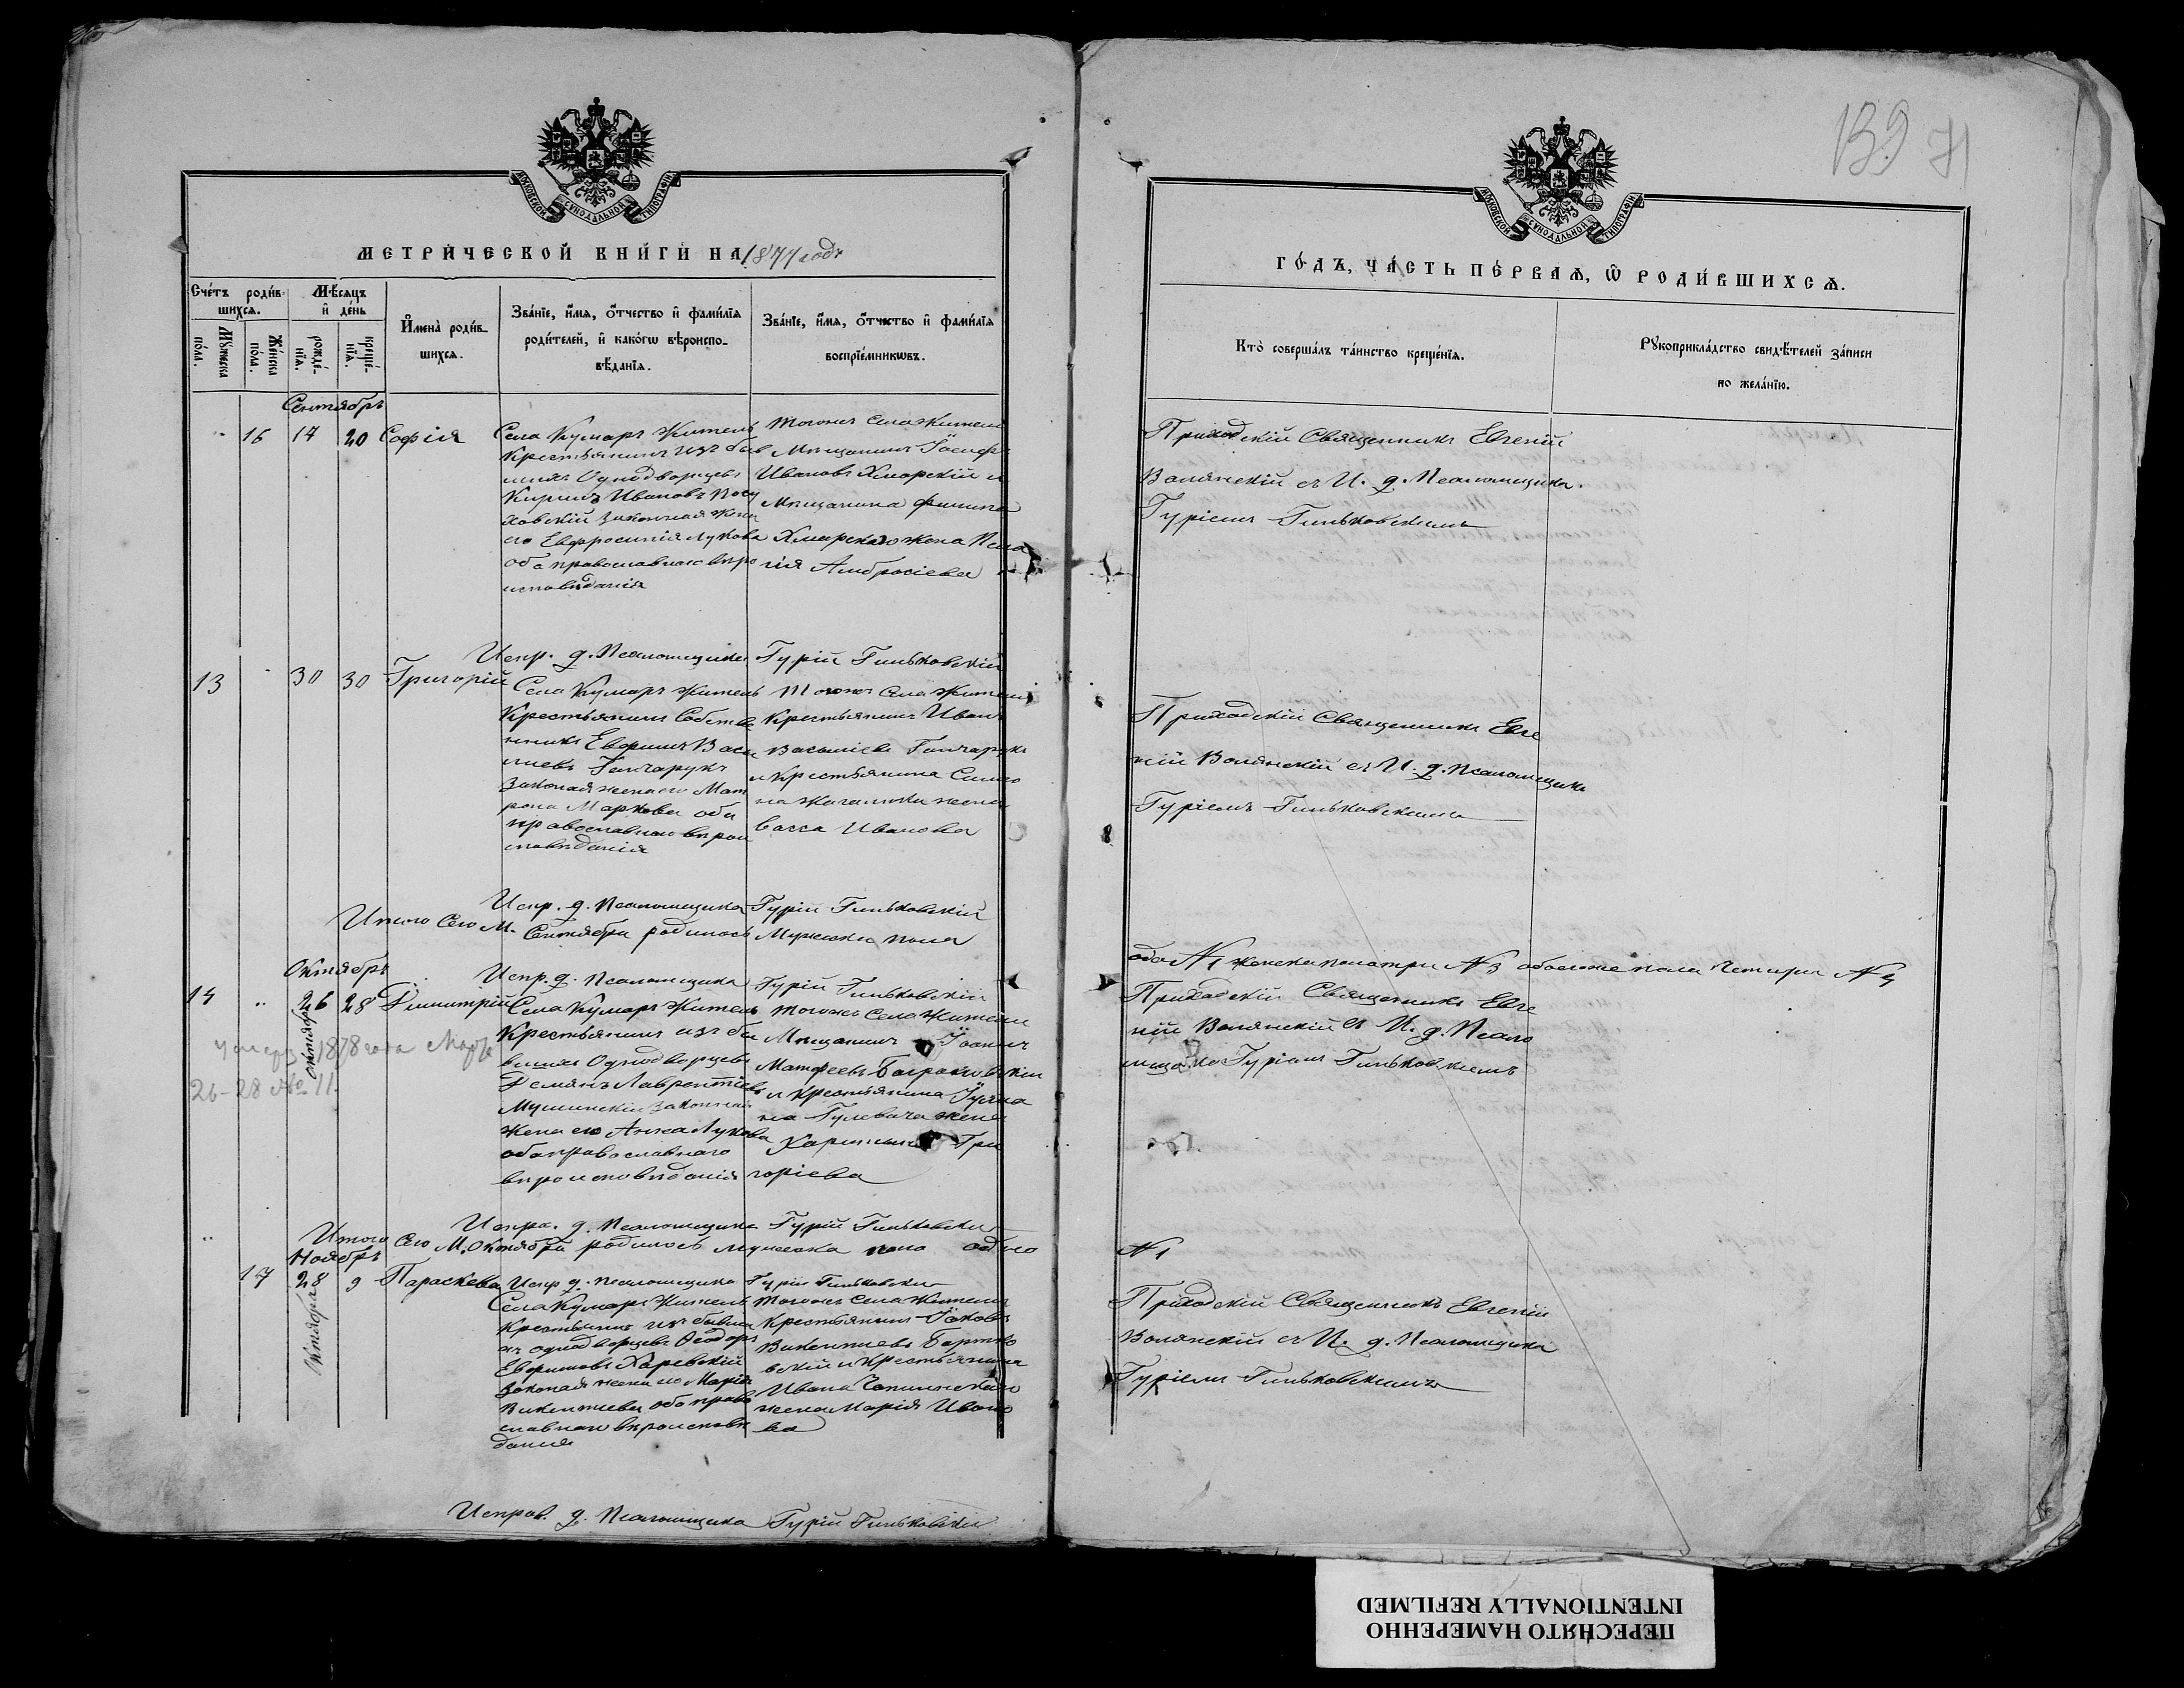 МОСКОВСКОЙ СѴНОДАЛЬНОЙ ТИПОГРАФІИ
МЕТРИЧЕСКОЙ КНИГИ НА 1877 годъ
Счетъ родившихся.
Мѣсяцъ и день
Мужеска пола.
Женска пола.
рожденія.
крещенія.
Имена родившихся.
Званіе, имя, отчество и фамилія родителей, и какогѡ вѣроисповѣданія.
Званіе, имя, отчество и фамилія воспріемникѡвъ.
Сентябрь
16 17 20 Софія
Села Кумаръ Житель
Крестьянинъ изъ быв
шихъ Однодворцевъ
Кириллъ Ивановъ
законная жена
его Евфросинія Лукова
оба православнаго вѣро
исповѣданія
тогоже села жители
Мѣщанинъ Іосифъ
Ивановъ Хмарскій и
Мѣщанина Филипа
Хмарскаго жена Пела
гія Амбросіева
Испр. д. Псаломщика Гурій Гиньковскій
13 30 30 Григорій
Села Кумаръ житель
Крестьянинъ Собстве
нникъ Евфимъ Васи
лiевъ Гончарукъ
Законая жена его Мат
рона Маркова оба
православнаго вѣрои
сповѣданія
тогоже села жители
Крестьянинъ Иванъ
Васильевъ Гончарукъ
и Крестьянина
жена
Васса Иванова
Испр. д. Псаломщика Гурій Гиньковскій
Итого Сего М. Сентября родилось Мужеска пола
Октябрь
14 26 28 Димитрій
Сентября
Умеръ 1878 года Марта
26-28 № 11.
Испр. д. Псаломщика Гурій Гиньковскій
Села Кумаръ Житель
Крестьянинъ изъ бы
вшихъ Однодворцевъ
Демянъ Лаврентіевъ
законная
жена его Анна Лукова
оба православнаго
вѣроисповѣданія
тогоже села жители
Мѣщанинъ Іоаннъ
Матфеевъ
и крестьянина Іуліа
на Гулевича жена
Гри
горіева
Испра. д. Псаломщика Гурій Гиньковскій
Итого Сего М. Октября родилось мужеска пола одно
Ноябрь
17 28 9 Параскева
Октября
Испр д. Псаломщика Гурій Гиньковскій
Села Кумаръ Житель
Крестьянинъ изъ бывши
хъ однодворцевъ Ѳеодоръ
Евфимовъ Харевскій
Законая жена его Марія
Викентіева оба право
славнаго вѣроисповѣ
данія
тогоже села жители
Крестьянинъ Іаковъ
Викентіевъ Бартко
вскій и Крестьянина
Ивана
жена Марія Ивано
ва
Исправ. д. Псаломщика Гурій Гиньковскій
139 71
МОСКОВСКОЙ СѴНОДАЛЬНОЙ ТИПОГРАФІИ
ГОДЪ, ЧАСТЬ ПЕРВАЯ, Ѡ РОДИВШИХСЯ.
Кто совершалъ таинство крещенія.
Рукоприкладство свидѣтелей записи по желанію.
Приходскій Священникъ Евгеній
Волянскій съ И. д. Псаломщика
Гуріемъ Гиньковскимъ
Приходскій Священникъ Евге
ній Волянскій съ И. д. Псаломщика
Гуріемъ Гиньковскимъ
одо № 1 женска пола три № 3 обоегоже пола Четыри № 4
Приходскій Священникъ Евге
ній Волянскій съ И. д. Псало
мщика Гуріемъ Гиньковскимъ
№ 1
Приходскій Священникъ Евгеній
Волянскій съ И. д. Псаломщика
Гуріемъ Гиньковскимъ
ПЕРЕСНЯТО НАМЕРЕННО
INTENTIONALLY REFILMED